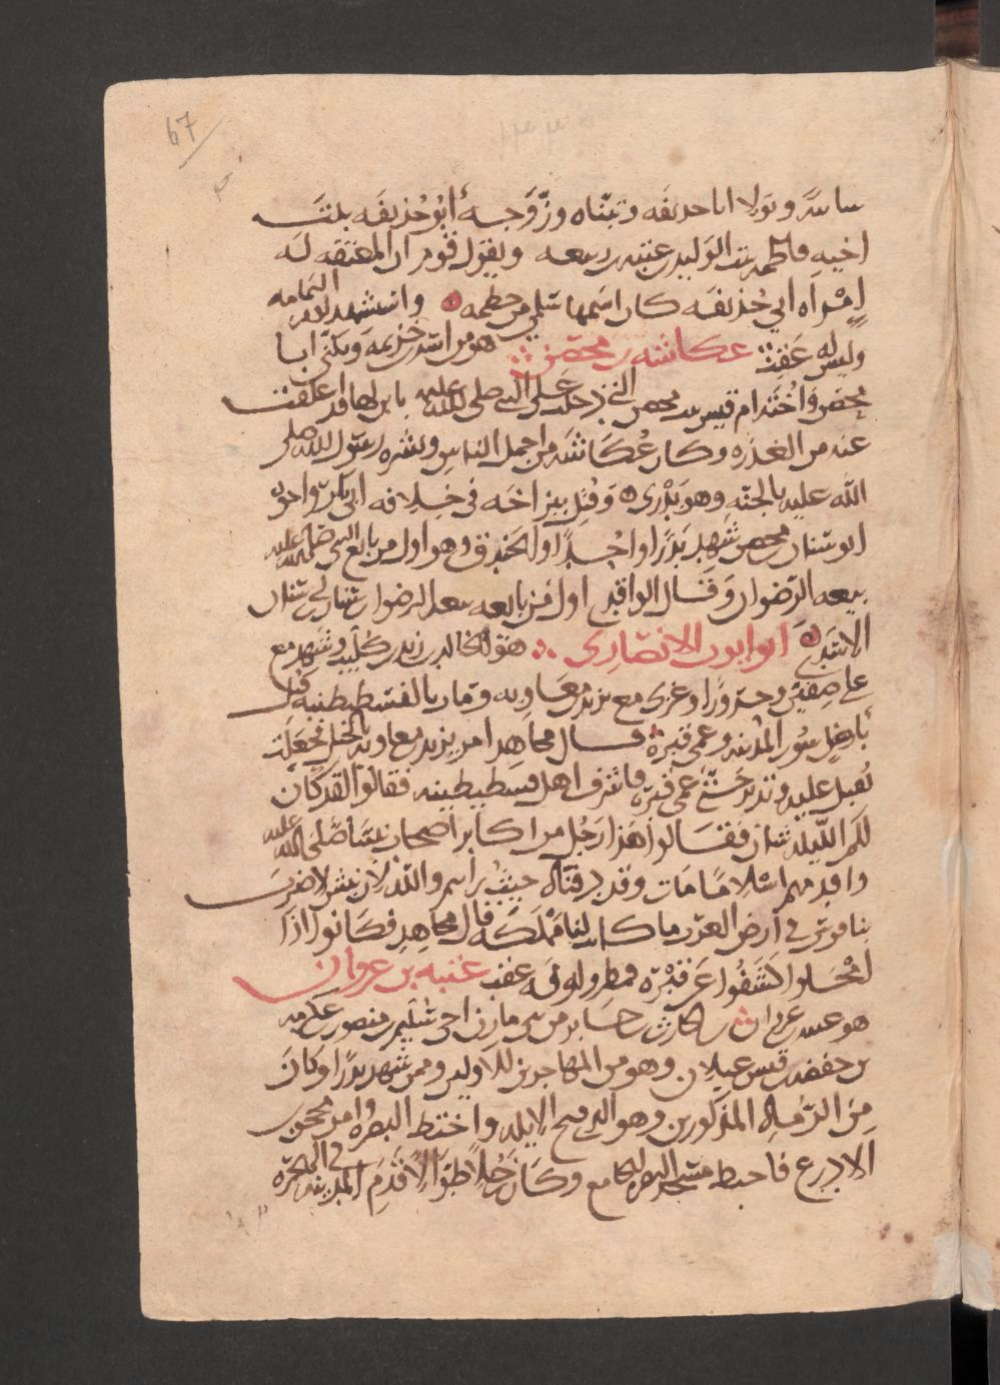 67
سايبه وتولا ابا حذيفه وتبناه وزوجه أبو حذيفه بابنت
اخيه فاطمه بنت الوليد بن عتبه بن ربيعه ويقول قوم ان المعتقه له
امراه ابي حذيفه كان اسمها سلمى من خطمه واستشهد يوم اليمامه
وليس له عقب عكاشه بن محصن هو من اسد خزيمه ويكنى ابا
محصن واخته ام قيس بنت محصن التي دخلت على النبي صلى الله عليه بابن لها قد اعلقت
عنه من العذره وكان عكاشه من اجمل الناس وبشره رسول الله صلى
الله عليه بالجنه وهو بدري وقتل ببزاخه في خلافه ابي بكر واخوه
ابو سنان بن محصن شهد بدرا واحدا والخندق وهو اول من بايع النبي صلى الله عليه
بيعه الرضوان وقال الواقدي اول من بايعه بيعه الرضوان سنان بن ابي سنان
الاسدي ابو ايوب الانصاري هو خالد بن زيد بن كليب وشهد مع
علي صفين وحرورا وغزى مع يزيد بن معاويه ومات بالقسطنطينيه
باصل سور المدينه وعمي قبره قال مجاهد امر يزيد بن معاويه بالخيل فجعلت
تقبل عليه وتدبر حتى عمي قبره فاشرف اهل قسطنطينيه فقالوا لقد كان
لكم الليله شان فقالوا هذا رجل من اكابر اصحاب نبينا صلى الله عليه
واقدمهم اسلاما مات وقد دفناه حيث رايتم والله لان نبش لا ضرب
بناقوس في ارض العرب ما كانت لنا مملكه قال مجاهد فكانوا اذا
امحلوا كشفوا عن قبره فمطروا وله عقب عتبه بن غزوان
هو عتبه بن غزوان بن الحارث بن جابر من بني مازن اخي سليم بن منصور بن عكرمه
بن خصفه بن قيس عيلان وهو من المهاجرين الاولين وممن شهد بدرا وكان
من الرماه المذكورين وهو الذي فتح الابله واختط البصره وامر محجن
الادرع فاختط مسجد البصره الجامع وكان رجلا طوالا قدم المدينه في الهجره